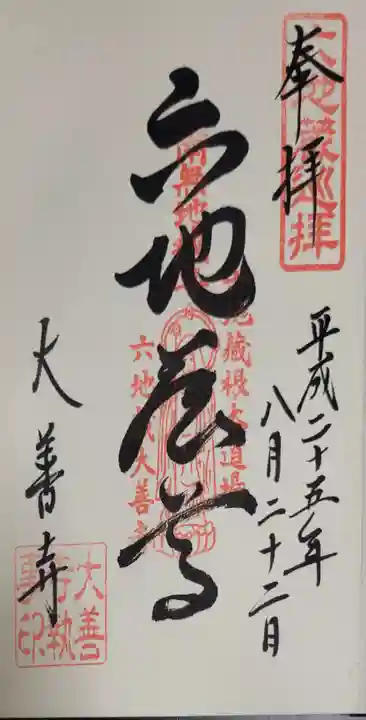 奉拝
六地蔵巡拝
平成二十五年
八月二十二日
六地蔵尊
南無地蔵
地蔵根本道場
六地蔵大善寺
大善寺
大善
寺執
事印